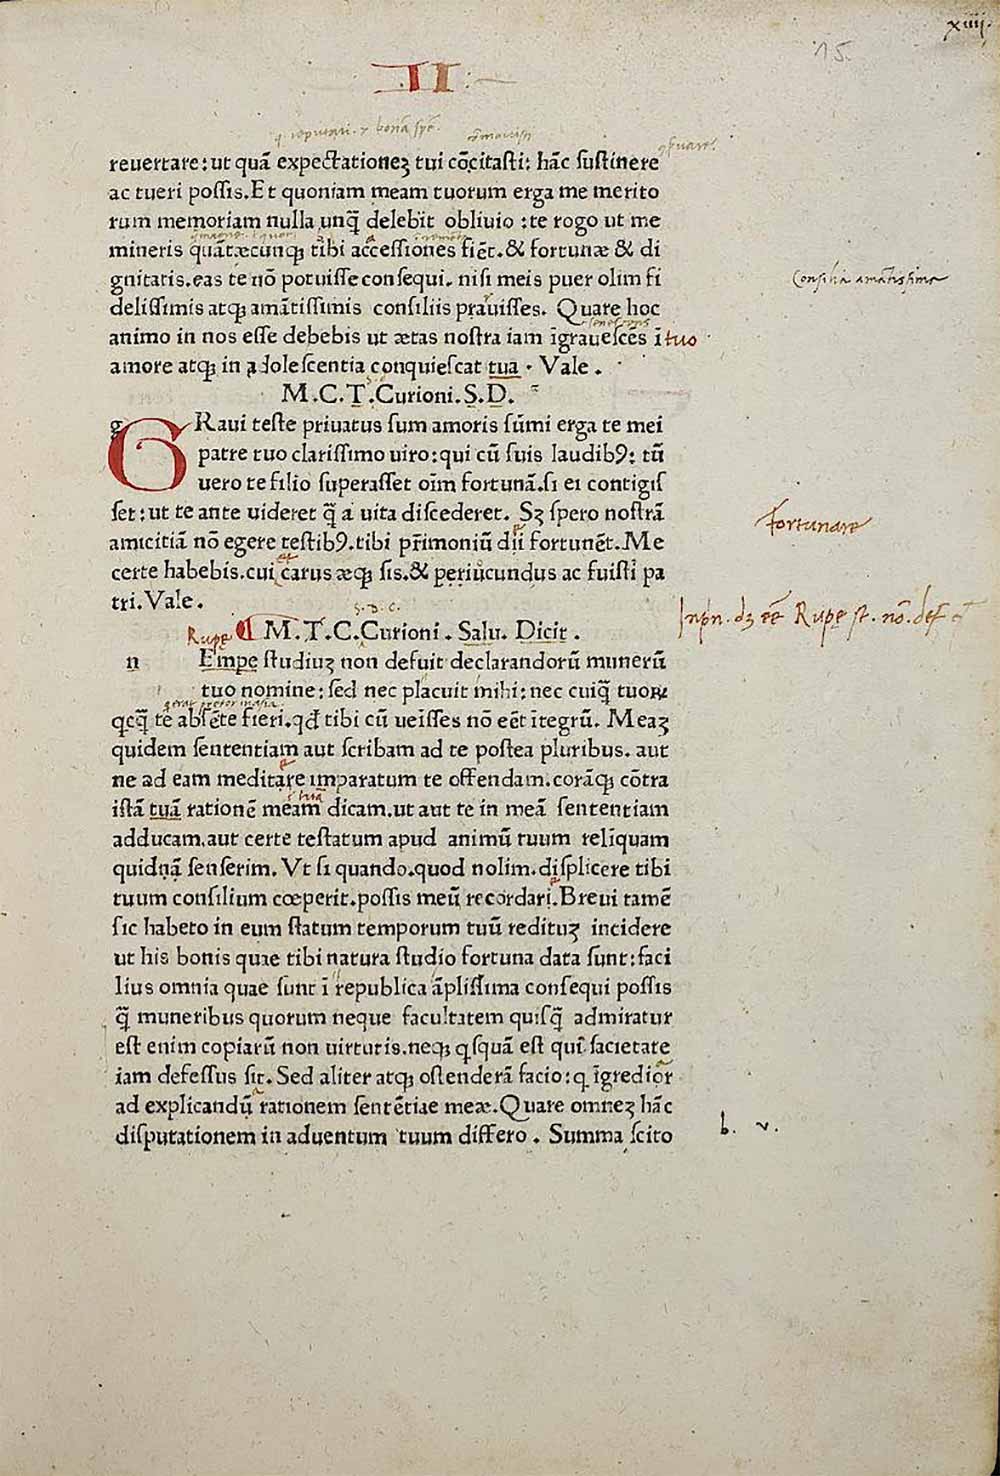 xiiij.
15.
II
revertare: ut quã expectationeʒ tui cõcitasti: hãc sustinere
ac tueri possis. Et quoniam meam tuorum erga me merito
rum memoriam nulla unq̃ delebit oblivio : te rogo ut me
mineris quãtæcunqꝫ tibi accessiones fiẽt. & fortunæ & di
gnitatis. eas te nõ potuisse consequi. nisi meis puer olim fi
delissimis atqꝫ amãtissimis consiliis pravisses. Quare hoc
Consilia amãtissima
animo in nos esse debebis ut ætas nostra iam ĩgravescẽs ĩ tuo
amore atqꝫ in adolescentia conquiescat tua . Vale .
M.C.T.Curioni.S.D.
g
GRaui teste privatus sum amoris sũmi erga te mei
patre tuo clarissimo uiro: qui cũ suis laudibꝰ: tũ
uero te filio superasset oĩm fortunã. si ei contigis
set: ut te ante uideret q̃ a uita discederet. Sꝫ spero nostrã
Fortunare
amicitiã nõ egere testibꝰ. tibi pr̃imoniũ dii fortunẽt. Me
certe habebis. cui carus æqꝫ sis. & periucundus ac fuisti pa
tri. Vale .
Rupę ¶ M.T.C.Curioni . Salu. Dicit .
n Empe studiuʒ non defuit declarandorũ munerũ
tuo nomine: sed nec placuit mihi: nec cuiq̃ tuoꝝ
qcq̃ te absẽte fieri. qđ tibi cũ ueĩsses nõ eẽt ĩtegrũ. Meaʒ
quidem sententiam aut scribam ad te postea pluribus. aut
ne ad eam meditare imparatum te offendam. corãqꝫ cõtra
istã tuã rationẽ meam dicam. ut aut te in meã sententiam
adducam. aut certe testatum apud animũ tuum reliquam
quidnã senserim. Vt si quando. quod nolim. displicere tibi
tuum consilium cœperit. possis meũ recordari. Breui tamẽ
sic habeto in eum statum temporum tuũ redituʒ incidere
ut his bonis quae tibi natura studio fortuna data sunt: faci
lius omnia quae sunt ĩ republica ãplissima consequi possis
q̃ muneribus quorum neque facultatem quisq̃ admiratur
est enim copiarũ non uirtutis. neqꝫ qsquã est qui sacietate
iam defessus sit. Sed aliter atqꝫ ostenderã facio: q ĩgredior
ad explicandũ rationem sentẽtiae meæ. Quare omneʒ hãc
disputationem in aduentum tuum differo . Summa scito
b. v.